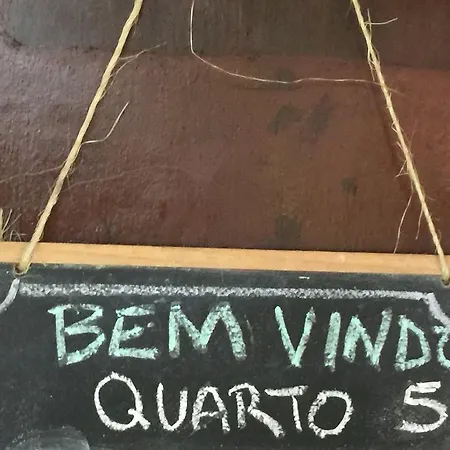 BEM VINDO
QUARTO 5